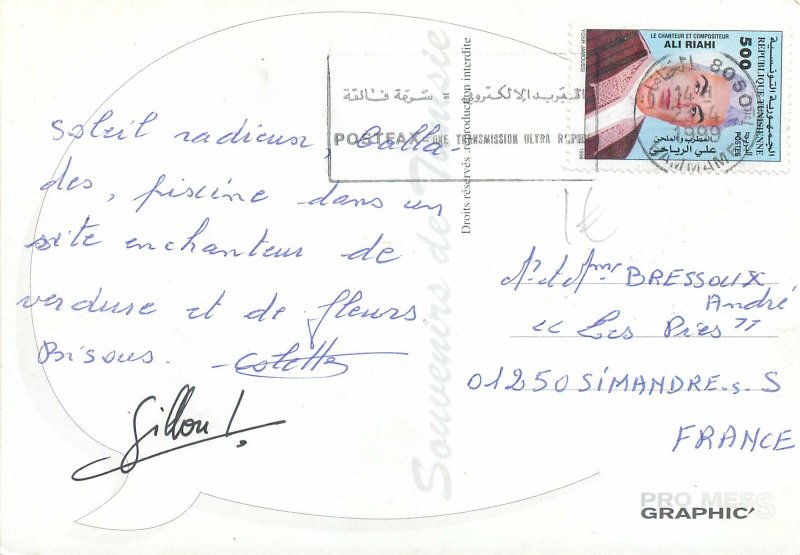 Soleil radieux, balla-
des, piscine dans un
site enchanteur de
verdure et de fleurs.
Bisous. Colette
Gillou!
Souvenirs de Tunisie
Droits réservés. reproduction interdite
البريد الإلكتروني = سرعة فائقة
POSTFAX = UNE TRANSMISSION ULTRA RAPIDE
LE CHANTEUR ET COMPOSITEUR
ALI RIAHI
500
REPUBLIQUE TUNISIENNE
الجمهورية التونسية
POSTES
البريد
المطرب والملحن
علي الرياحي
YOSR JAMOUSSI
1998
8050
1999
HAMMAMET
1€
Mr et Mme BRESSOUX
André
"Les Pies"
01250 SIMANDRE s. S
FRANCE
PRO MESS
GRAPHIC'